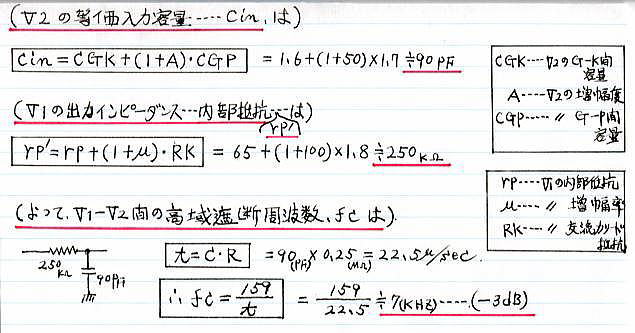 (V2の等価入力容量‥‥Cin,は)
Cin=CGK+(1+A)・CGP =1.6+(1+50)×1.7≑90PF
CGK‥‥V2のG-K間容量
A‥‥V2の増幅度
CGP‥‥〃 G-P間容量
(V1の出力インピーダンス‥内部抵抗‥は)
rP'
rP'=rP+(1+μ)・RK =65+(1+100)×1.8≑250KΩ
rP‥‥V1の内部抵抗
μ‥‥〃 増幅率
RK‥‥〃 交流カソード抵抗
(よって、V1-V2間の高域遮断周波数、fcは)
250KΩ
90PF
t=C・R =90(PF)×0.25(MΩ)=22.5μ/sec.
∴fc=159/t =159/22.5≑7(KHz)‥‥(-3dB)